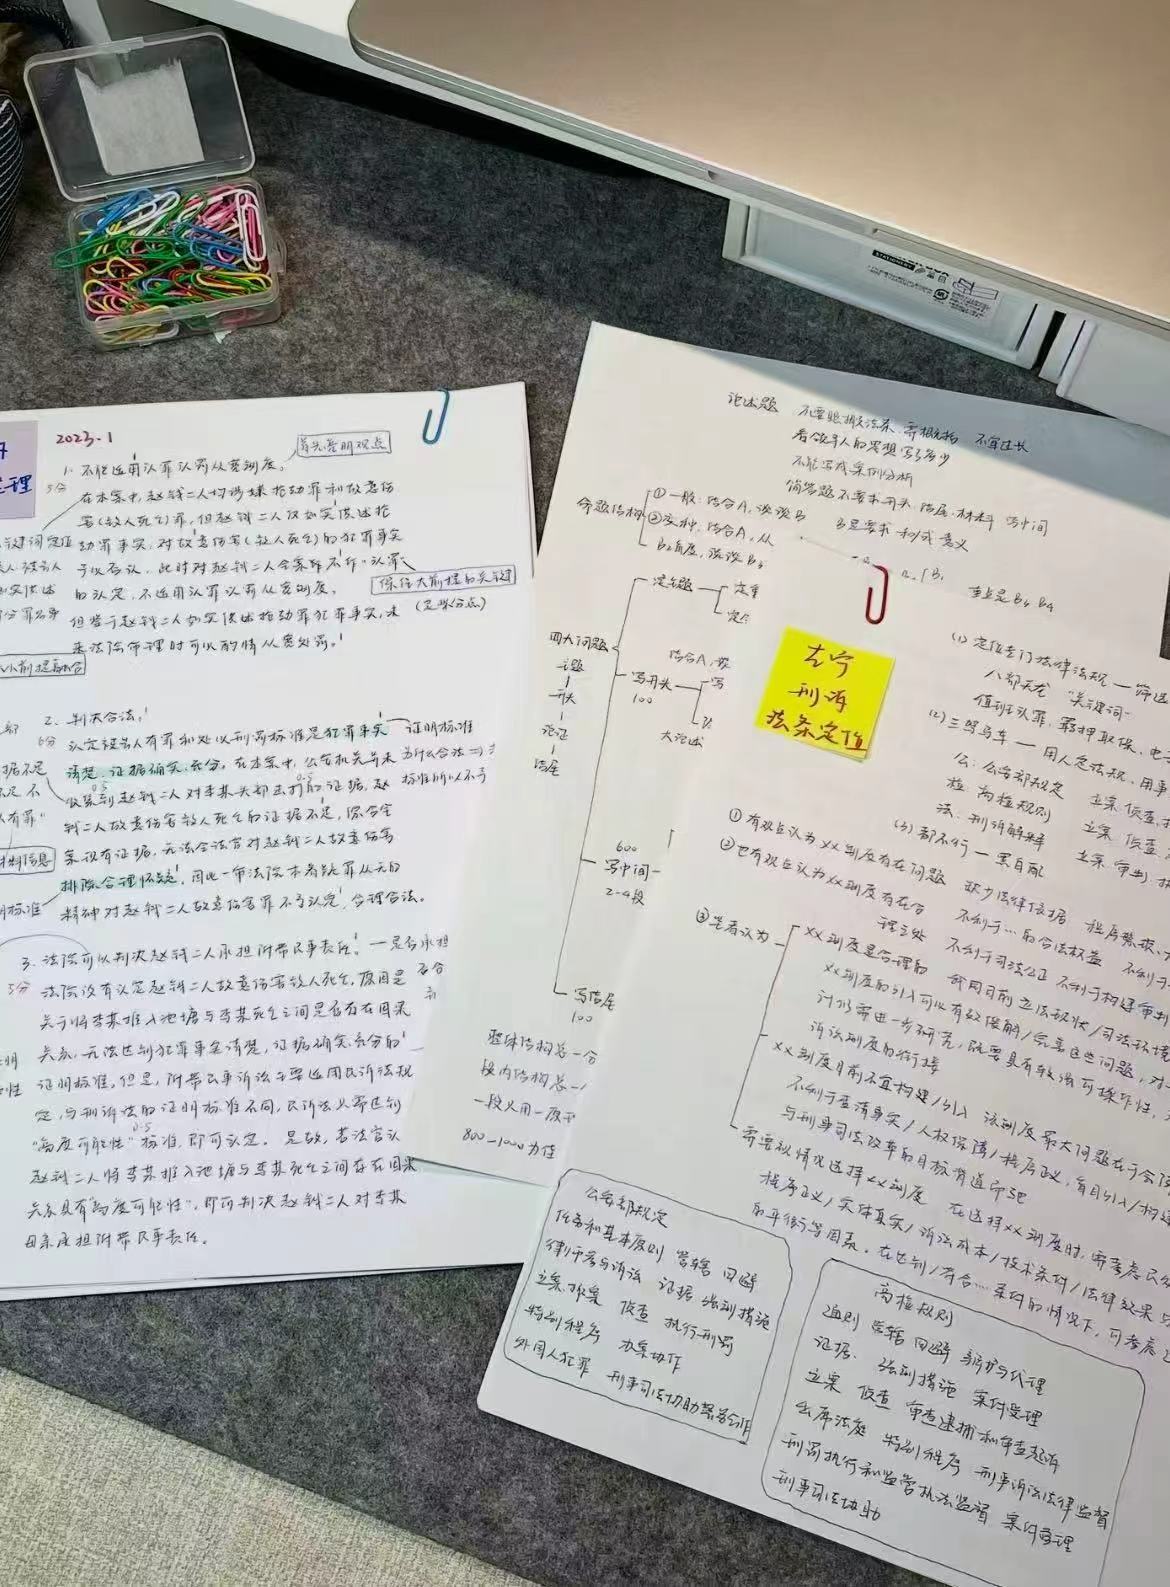 2023.1
首先亮明观点
1. 不能适用认罪认罚从宽制度。
5分
在本案中，赵钱二人均涉嫌抢劫罪和故意伤
害(致人死亡)罪，但赵钱二人仅如实供述抢
劫罪事实，对故意伤害(致人死亡)的犯罪事实
予以否认，此时对赵钱二人全案能不作"认罪"
的认定，不适用认罪认罚从宽制度。
保住大前提的关键
(定性分点)
但鉴于赵钱二人如实供述抢劫罪犯罪事实，未
来法院审理时可以酌情从宽处罚。
2. 判决合法。
6分
认定被告人有罪和处以刑罚标准是犯罪事实
证明标准
清楚，证据确实、充分。在本案中，公安机关并未
为什么合法
收集到赵钱二人对李某头部击打的证据，赵
标准所以不予
钱二人故意伤害致人死亡的证据不足，综合全
案现有证据，无法令法官对赵钱二人故意伤害
排除合理怀疑，因此一审法院本着疑罪从无的
精神对赵钱二人故意伤害罪不予认定，合理合法。
3. 法院可以判决赵钱二人承担附带民事责任。
是否承担
5分
法院没有认定赵钱二人故意伤害致人死亡，原因是
关于将李某推入池塘与李某死亡之间是否存在因果
关系，无法达到犯罪事实清楚，证据确实充分的
证明标准，但是，附带民事诉讼主要适用民诉法规
定，与刑诉法的证明标准不同，民诉法只需达到
"高度可能性"标准，即可认定。是故，若法官认
赵钱二人将李某推入池塘与李某死亡之间存在因果
关系具有"高度可能性"，即可判决赵钱二人对李某
母亲承担附带民事责任。
论述题
不要照搬法条，需概括
不宜过长
看领导人的思想写了多少
不能写成案例分析
简答题不要求开头、结尾、材料
写中间
命题结构
①一般：结合A，谈谈B
②变种：结合A，从
B2角度，谈谈B3
B是要求
利或意义
重点是B3 B4
四大问题
主题
开头
论证
结尾
定主题
定重
写开头
100
结合A，
写
大论述
600
写中间
2-4段
写结尾
100
整体结构总一分
段内结构总一
一段只用一原
800-1000为佳
左宁
刑诉
法条定位
(1) 定位专门法律法规 — 筛选
八部天龙 "关键词"
值班认罪，羁押取保，电
(2) 三驾马车 — 用人定法规，用事
公：公安部规定 立案、侦查、
检：高检规则 立案 侦查
法：刑诉解释 立案 审判
(3) 都不行 — 黑白配
①有观点认为xx制度存在问题
缺少法律依据 程序繁琐
②也有观点认为xx制度存在合
理之处
不利于…的合法权益
不利于司法公正 不利于构建审判
③笔者认为
xx制度是合理的 我国目前立法现状/司法环境
xx制度的引入可以有效缓解/完善这些问题，对
计仍需进一步研究，既要具有较强可操作性
诉讼制度的衔接
xx制度目前不宜构建/引入 该制度最大问题在于会
不利于查清事实/人权保障/程序正义，盲目引入/构建
与刑事司法改革的目标背道而驰
需要视情况选择xx制度 在选择xx制度时，需考虑
程序正义/实体真实/诉讼成本/技术条件/法律效果与
的平衡等因素。在达到/符合…条件的情况下，可考虑
公安部规定
任务和基本原则 管辖 回避
律师参与诉讼 证据 强制措施
立案、撤案 侦查 执行刑罚
特别程序 办案协作
外国人犯罪 刑事司法协助警务合作
高检规则
通则 管辖 回避 辩护与代理
证据 强制措施 案件受理
立案 侦查 审查逮捕和审查起诉
出席法庭 特别程序 刑事诉讼法律监督
刑罚执行和监管执法监督 案件管理
刑事司法协助